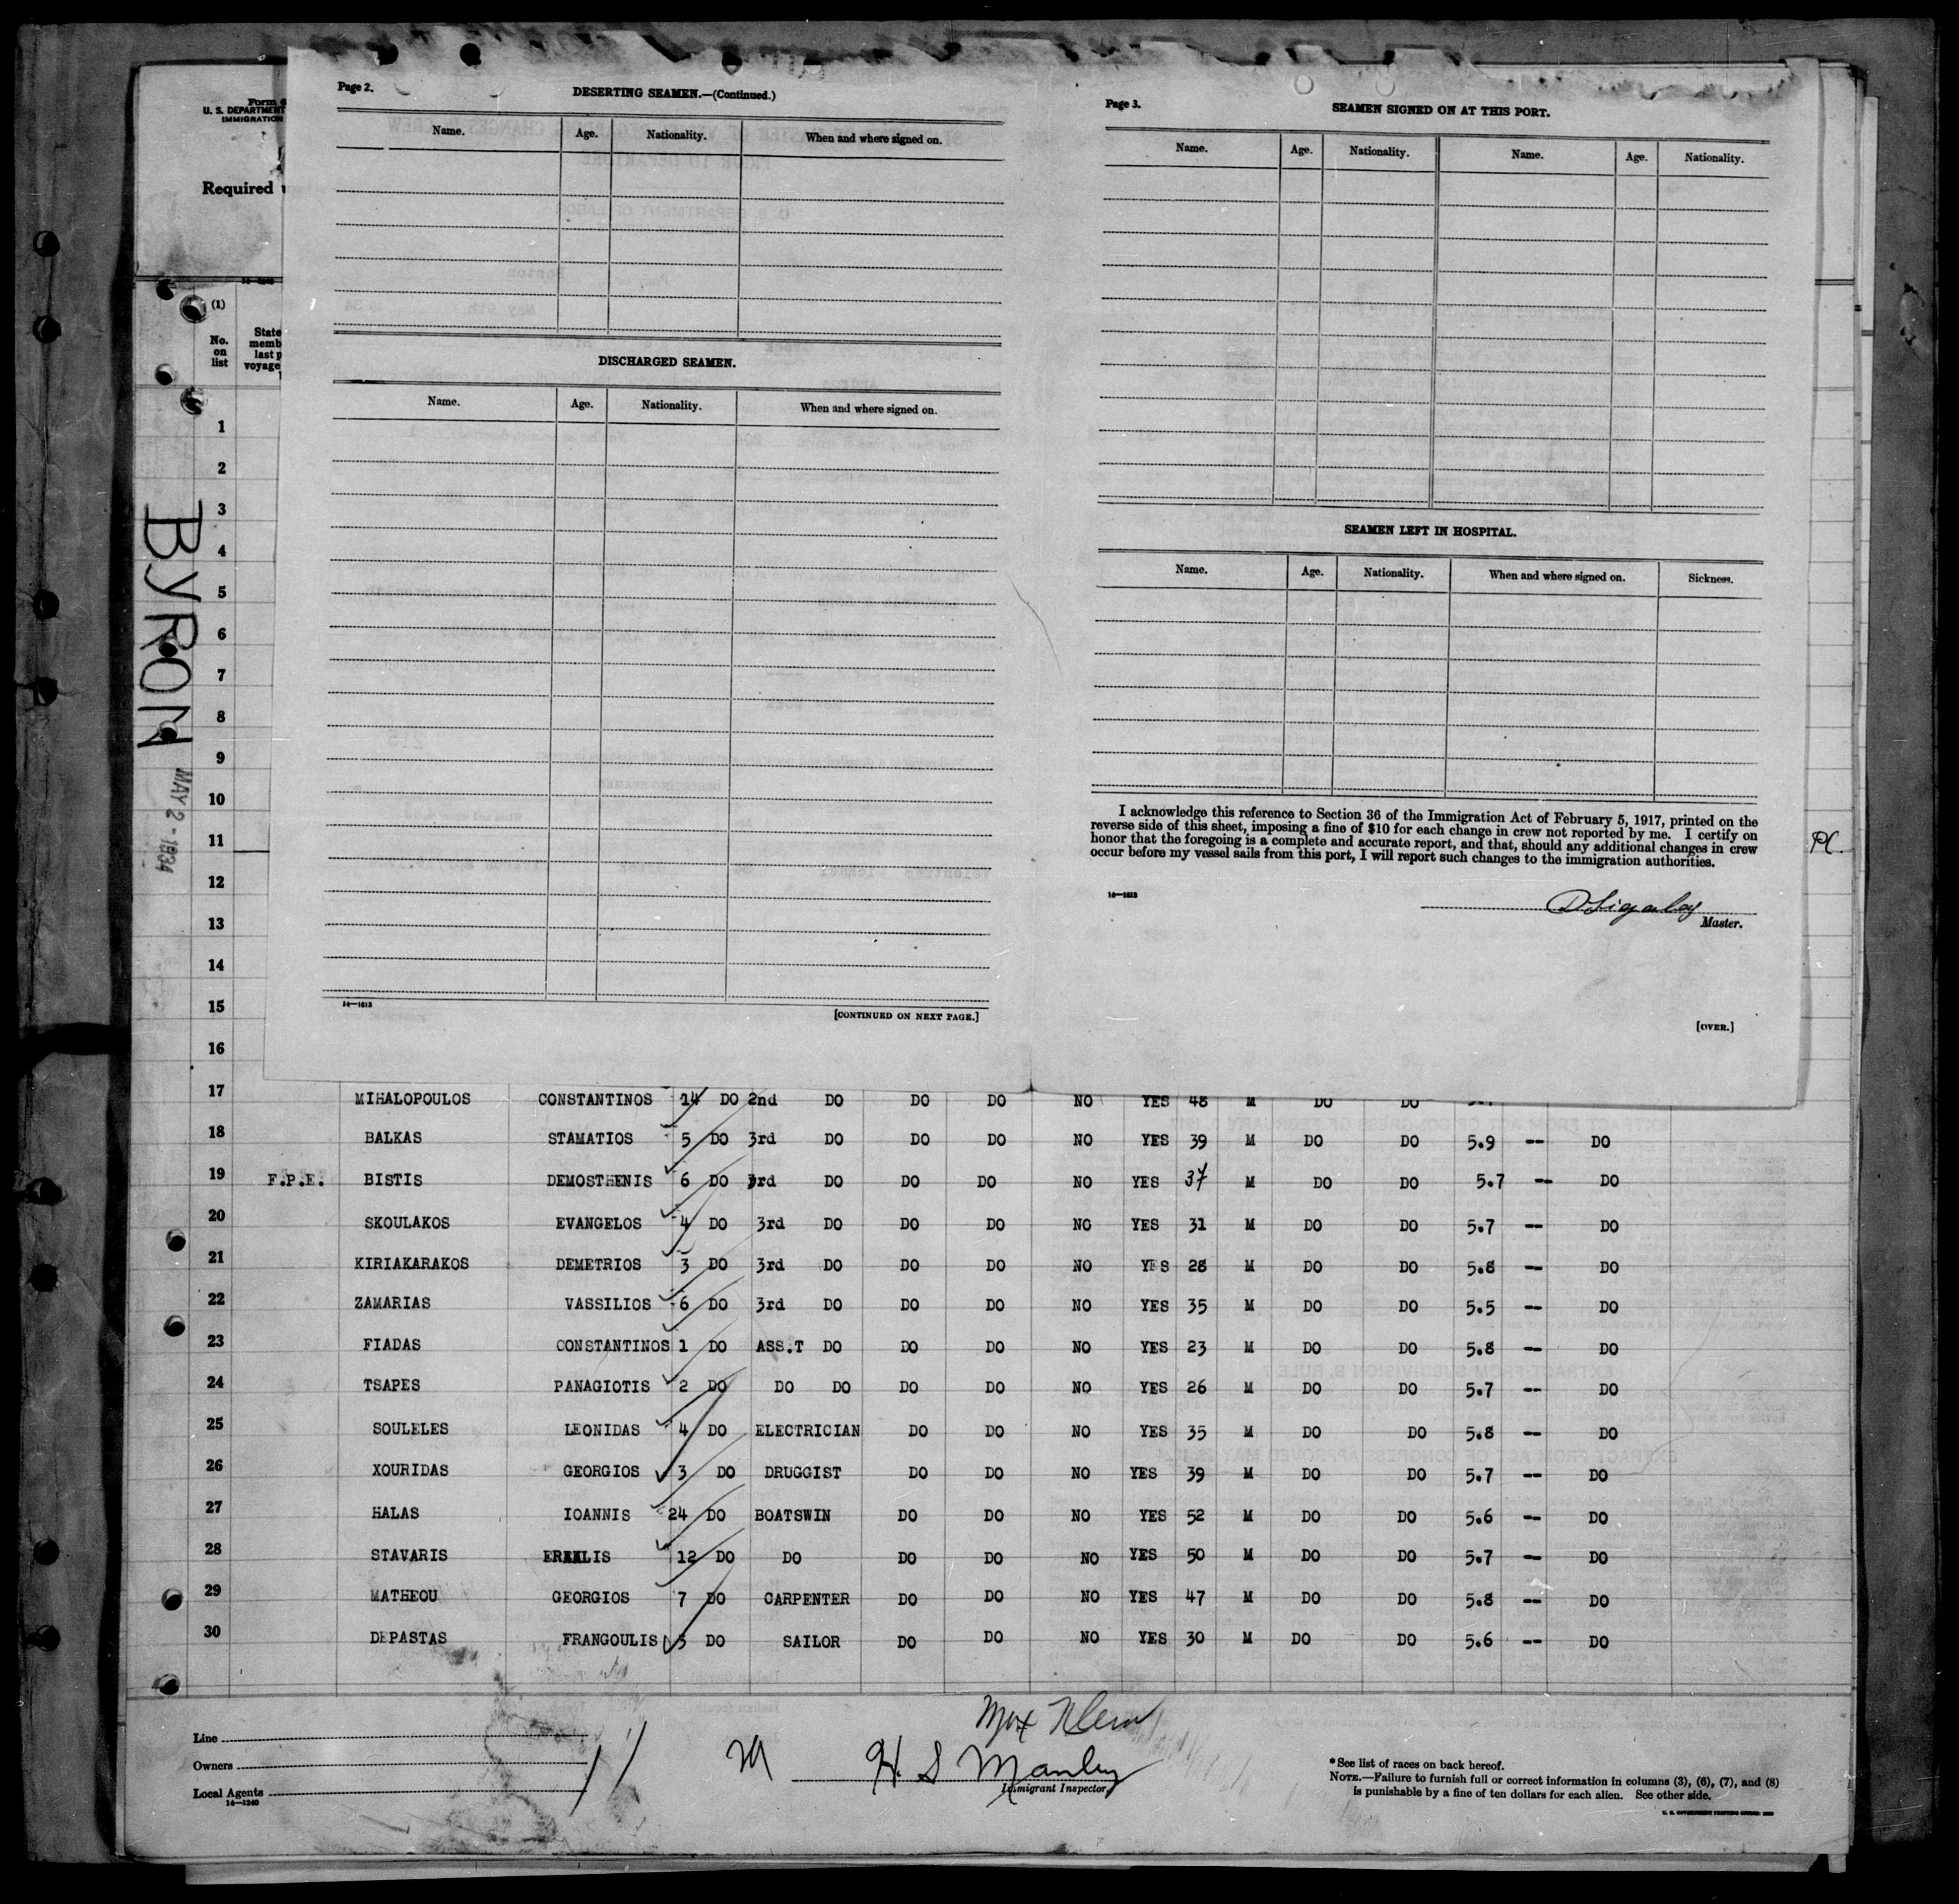 Form 6
U. S. DEPARTMENT
IMMIGRATION
Required
(1)
No. on list
State
memb
last p
voyage
BYRON
MAY 2 - 1934
Page 2.
DESERTING SEAMEN.—(Continued.)
Name. Age. Nationality. When and where signed on.
DISCHARGED SEAMEN.
Name. Age. Nationality. When and where signed on.
14—1613
[CONTINUED ON NEXT PAGE.]
Page 3.
SEAMEN SIGNED ON AT THIS PORT.
Name. Age. Nationality. Name. Age. Nationality.
SEAMEN LEFT IN HOSPITAL.
Name. Age. Nationality. When and where signed on. Sickness.
I acknowledge this reference to Section 36 of the Immigration Act of February 5, 1917, printed on the
reverse side of this sheet, imposing a fine of $10 for each change in crew not reported by me. I certify on
honor that the foregoing is a complete and accurate report, and that, should any additional changes in crew
occur before my vessel sails from this port, I will report such changes to the immigration authorities.
14—1613
Master.
[OVER.]
1
2
3
4
5
6
7
8
9
10
11
12
13
14
15
16
17 MIHALOPOULOS CONSTANTINOS 14 DO 2nd DO DO DO NO YES 48 M DO DO
18 BALKAS STAMATIOS 5 DO 3rd DO DO DO NO YES 39 M DO DO 5.9 -- DO
19 F.P.E. BISTIS DEMOSTHENIS 6 DO 3rd DO DO DO NO YES 37 M DO DO 5.7 -- DO
20 SKOULAKOS EVANGELOS 4 DO 3rd DO DO DO NO YES 31 M DO DO 5.7 -- DO
21 KIRIAKARAKOS DEMETRIOS 3 DO 3rd DO DO DO NO YES 28 M DO DO 5.8 -- DO
22 ZAMARIAS VASSILIOS 6 DO 3rd DO DO DO NO YES 35 M DO DO 5.5 -- DO
23 FIADAS CONSTANTINOS 1 DO ASS.T DO DO DO NO YES 23 M DO DO 5.8 -- DO
24 TSAPES PANAGIOTIS 2 DO DO DO DO DO NO YES 26 M DO DO 5.7 -- DO
25 SOULELES LEONIDAS 4 DO ELECTRICIAN DO DO NO YES 35 M DO DO 5.8 -- DO
26 XOURIDAS GEORGIOS 3 DO DRUGGIST DO DO NO YES 39 M DO DO 5.7 -- DO
27 HALAS IOANNIS 24 DO BOATSWIN DO DO NO YES 52 M DO DO 5.6 -- DO
28 STAVARIS 12 DO DO DO DO NO YES 50 M DO DO 5.7 -- DO
29 MATHEOU GEORGIOS 7 DO CARPENTER DO DO NO YES 47 M DO DO 5.8 -- DO
30 DEPASTAS FRANGOULIS 3 DO SAILOR DO DO NO YES 30 M DO DO 5.6 -- DO
Line
Owners
Local Agents
14—1240
Max Klein
H. S. Manley
Immigrant Inspector
* See list of races on back hereof.
NOTE.—Failure to furnish full or correct information in columns (3), (6), (7), and (8)
is punishable by a fine of ten dollars for each alien. See other side.